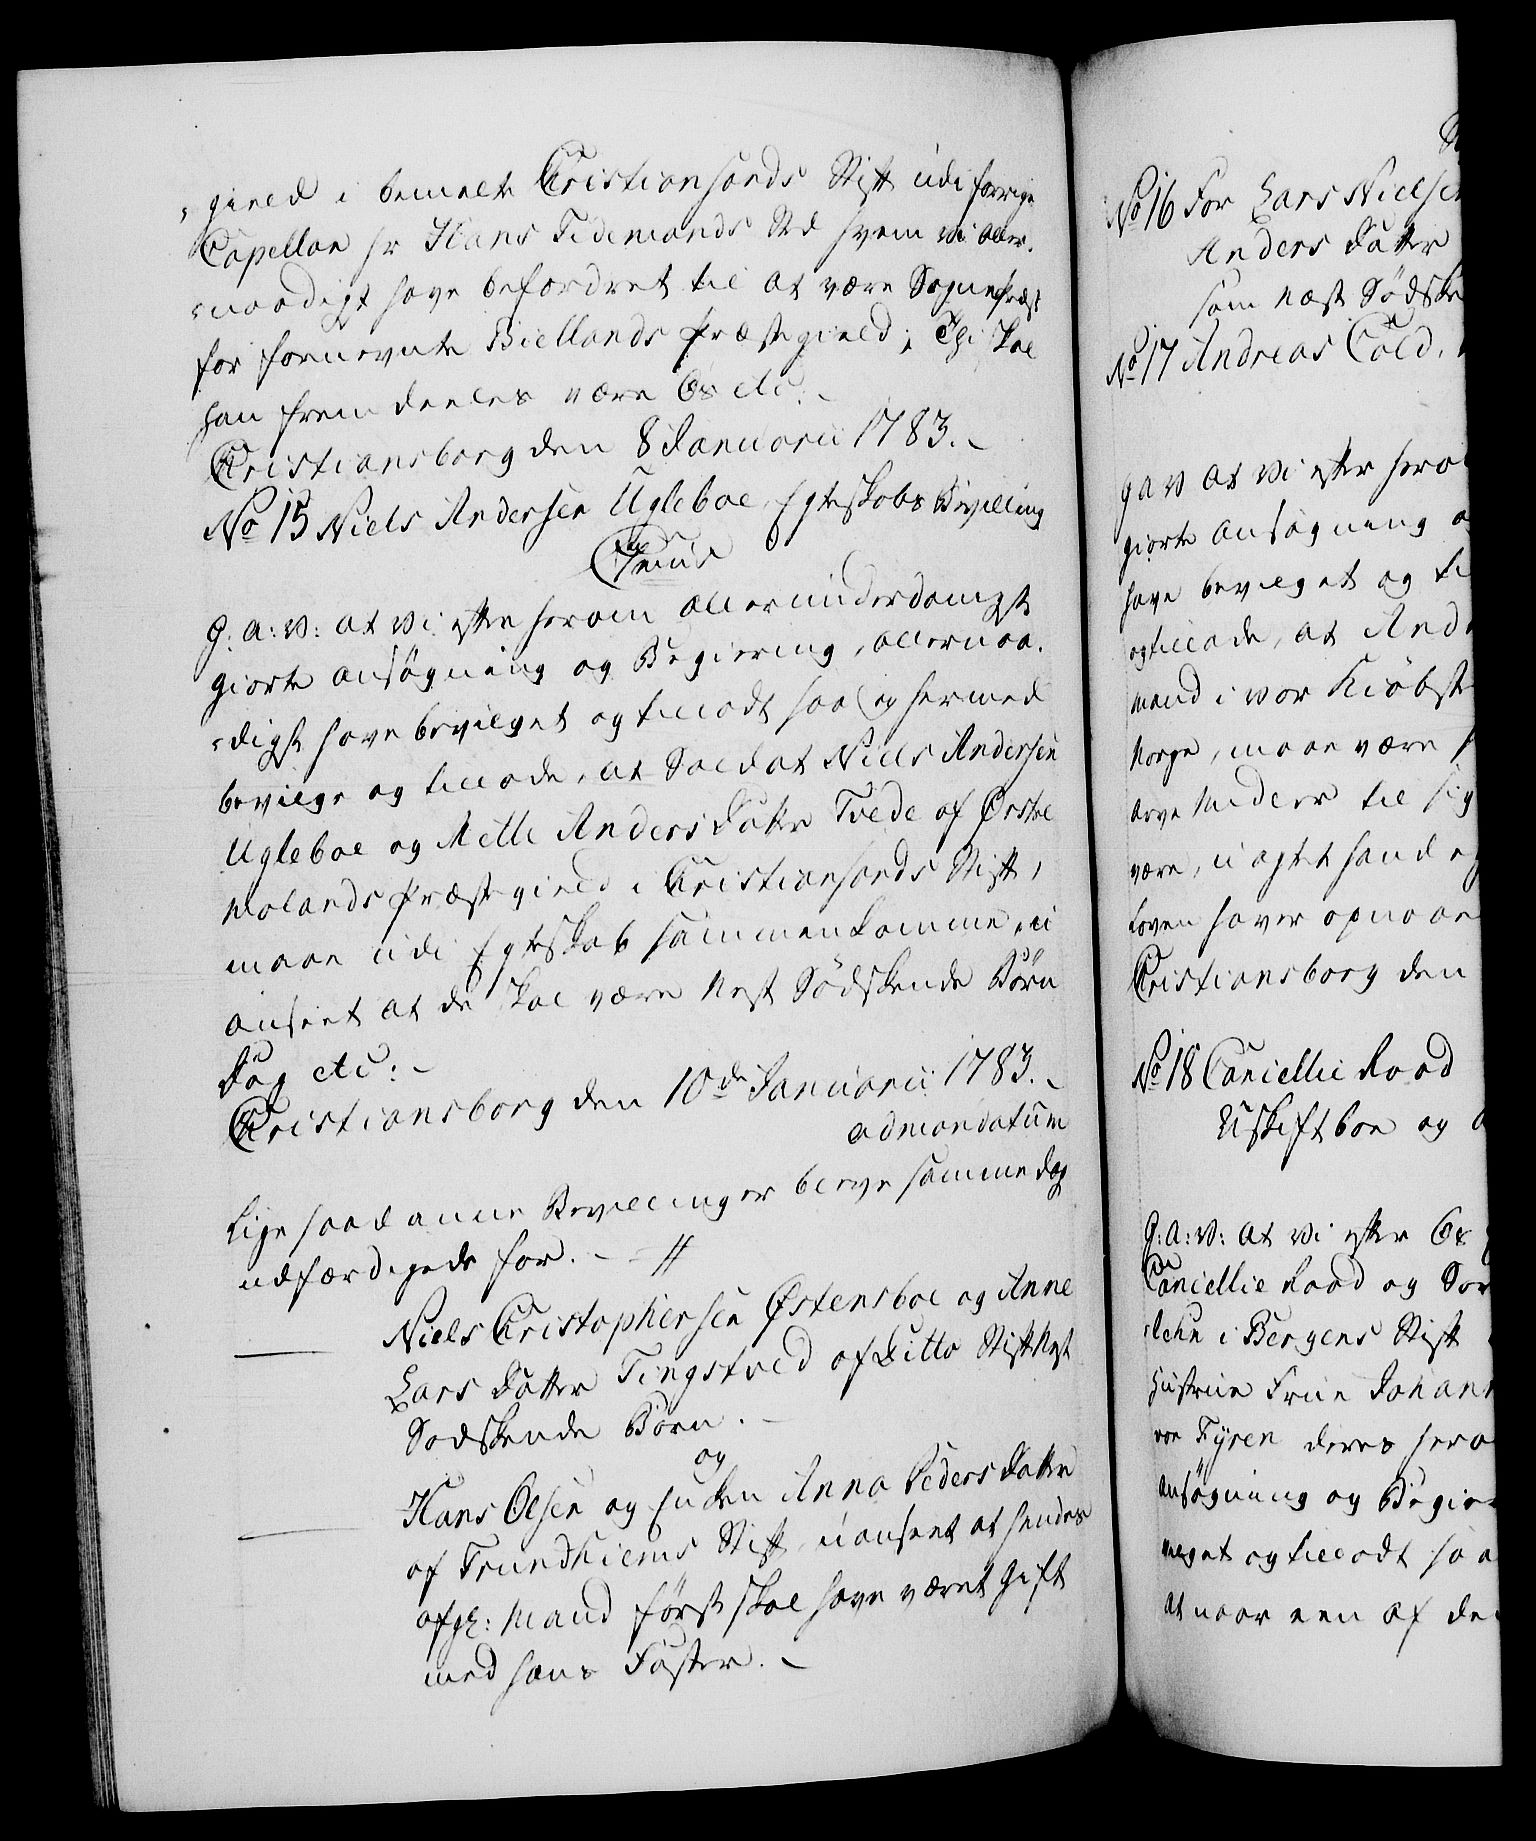 -gield i bemelte Christiansands Stift udi forrige
Capellan Hr Hans Tidemands Sted hvem vi aller-
-naadigst have befordret til at være Sognepræst
for fornevnte Biellands Præstegield; Thi skal
han fremdeeles være Os etc:
Christiansborg den 8 Januarii 1783.
No 15 Niels Andersen Ugleboe Egteskabs Bevilling
G: A: V: at Vi efter herom allerunderdanigst
giorte ansøgning og Begiering, allernaa-
-digst have bevilget og tilladt saa og hermed
bevilge og tillade, at Soldat Niels Andersen
Ugleboe og Mette Anders Datter Tvede af Østre
Molands Præstegield i Christiansands Stift,
maae udi Egteskab sammenkomme, u
anseet at de skal være Nest Sødskende Børn
Dog etc:
Christiansborg den 10de Januarii 1783.
ad mandatum
Lige saadanne Bevillinger bleve samme Dag
udfærdigede for.
Niels Christophersen Østensboe og Anne
Lars Datter Tingstved af Ditto Stift Nest
Sødskende Børn.
og
Hans Olsen og Enken Anna Peders Datter
af Trundhiems Stift, uanseet at hendes
afg: Mand først skal have været gift
med hans Faster.
No 16 For Lars Nielsen
Anders Datter
som næst Sødske
No 17 Andreas Cold.
G A V at Vi efter hero
giorte ansøgning
have bevilget og ti
og tillade, at And
mand i vor Kiøbst
Norge, maae være
Arve Midler til sig
være, u agtet hand
Loven haver opnaae
Christiansborg den
No 18 Cancellie Raad
Uskiftboe og
G: A: V: at Vi efter Os
Cancellie Raad og Sor
i Bergens Stift
Hustrue Frue Johan
von Fyren deres hero
ansøgning og Begie
vilget og tilladt saa
at naar een af de